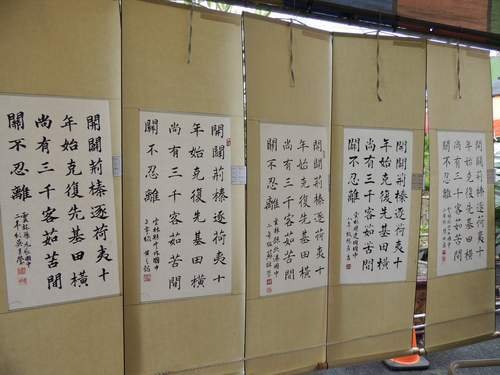 開闢荊榛逐荷夷十
年始克復先基田橫
尚有三千客茹苦間
關不忍離
雲林縣
開闢荊榛逐荷夷十
年始克復先基田橫
尚有三千客茹苦間
關不忍離
雲林縣
開闢荊榛逐荷夷十
年始克復先基田橫
尚有三千客茹苦間
關不忍離
雲林縣
開闢荊榛逐荷夷十
年始克復先基田橫
尚有三千客茹苦間
關不忍離
開闢荊榛逐荷夷十
年始克復先基田橫
尚有三千客茹苦間
關不忍離